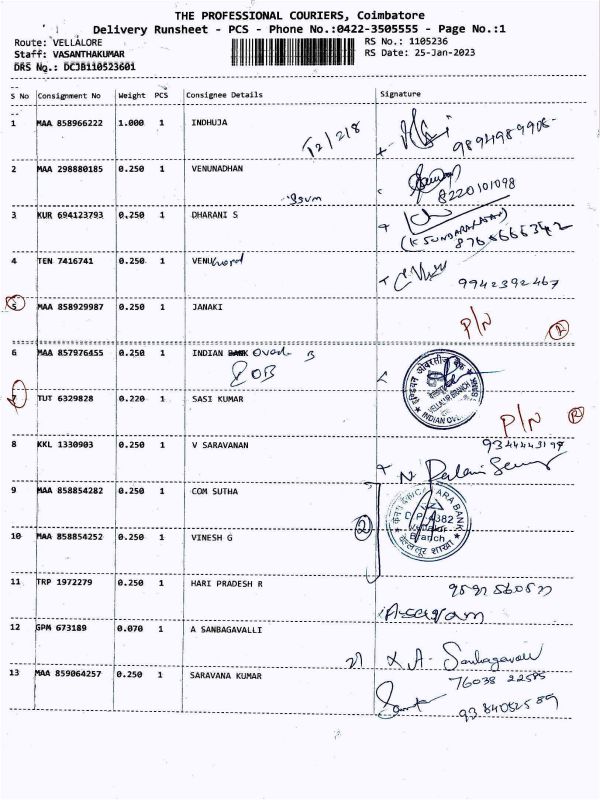 THE PROFESSIONAL COURIERS, Coimbatore
Delivery Runsheet - PCS - Phone No.:0422-3505555 - Page No.:1
Route: VELLALORE RS No.: 1105236
Staff: VASANTHAKUMAR RS Date: 25-Jan-2023
DRS No.: DCJB110523601
S No Consignment No Weight PCS Consignee Details Signature
1 MAA 858966222 1.000 1 INDHUJA
12/2/8 9894989908
2 MAA 298880185 0.250 1 VENUNADHAN
8220101098
3 KUR 694123793 0.250 1 DHARANI S
(K SUNDARARAJAN)
4 TEN 7416741 0.250 1 VENU
9942392467
5 MAA 858929987 0.250 1 JANAKI
P/N R
6 MAA 857976455 0.250 1 INDIAN BANK B
IOB
VELLALUR BRANCH
7 TUT 6329828 0.220 1 SASI KUMAR
P/N R
8 KKL 1330903 0.250 1 V SARAVANAN
9344443197
9 MAA 858854282 0.250 1 COM SUTHA
2
D P:4382
Vellalur
Branch
10 MAA 858854252 0.250 1 VINESH G
11 TRP 1972279 0.250 1 HARI PRADESH R
12 GPM 673189 0.070 1 A SANBAGAVALLI
A. Sanbagavalli
76038 22585
13 MAA 859064257 0.250 1 SARAVANA KUMAR
93 84052589